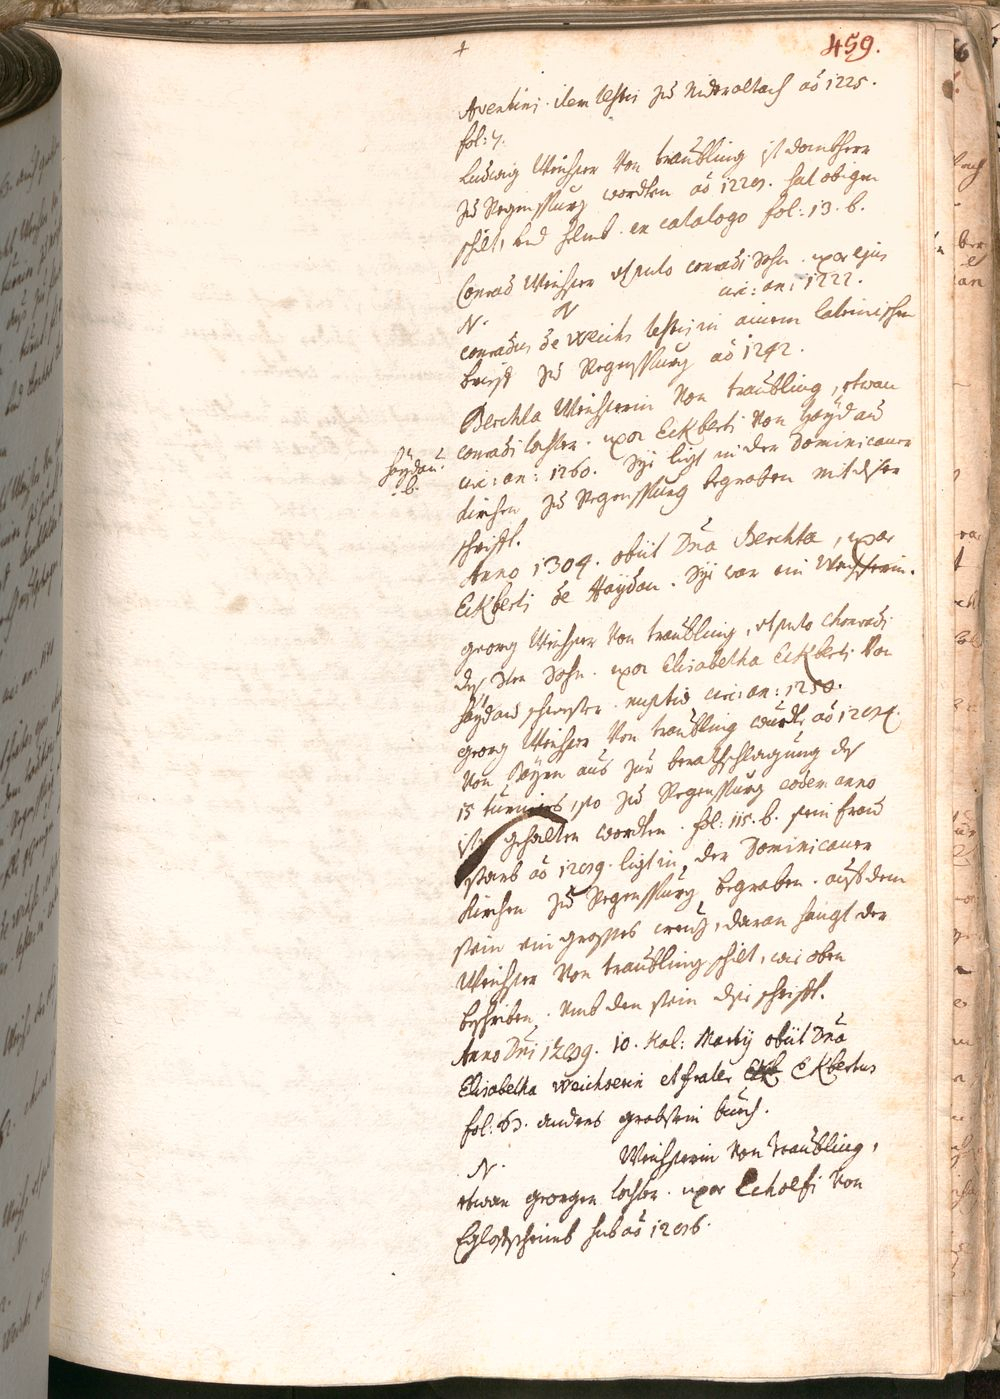 +
459.
Aventini. item testis zu Nideraltach aõ 1225.
fol: 7.
Ludwig Weichser Von traubling ist dombherr
zu Regenspurg wordten aõ 1229. hat obigen
schilt, und helmb. ex catalogo fol: 13. b.
Conrad Weichser ut puto conradi Sohn. uxor ejus
N. N circ: an: 1222.
conradus de Weichs testis in ainem lateinischen
brief zu Regenspurg aõ 1242.
Berchta Weichserin Von traubling, etwan
conradi tochter. uxor Eckberti Von Haydau
Haydau.
.b.
circ: an: 1260. Sye ligt in der Dominicaner
kirchen zu Regenspurg begraben mit diser
schrifft.
Anno 1304. obiit Dña Berchta, uxor
Eckberti de Haydau. Sye war ein Weichserin.
georg Weichser Von traubling, ut puto Chonradi
des Sohn. uxor Elisabetha Eckberti Von
Haydau schwester. nuptiæ circ: an: 1250.
georg Weichser Von traubling wurdt aõ 1284
Von Bayrn aus zur berathschlagung des
15 turniers, so zu Regenspurg eodem anno
ist gehalten wordten. fol: 115. b. sein frau
starb aõ 1289. ligt in der Dominicaner
kirchen zu Regenspurg begraben. auf dem
stein ein grosses creuz, daran hangt der
Weichser Von traubling schilt, wie oben
beschriben. Umb den stein dise schrifft.
Anno Dñi 1289. 10. Kal: Martij obiit Dña
Elisabetha Weichserin et frater Eckbertus
fol: 63. anders grabstein buech.
N. Weichserin Von traubling,
etwan georgen tochter. uxor Echolfi Von
Eglofsheimb sub aõ 1296.